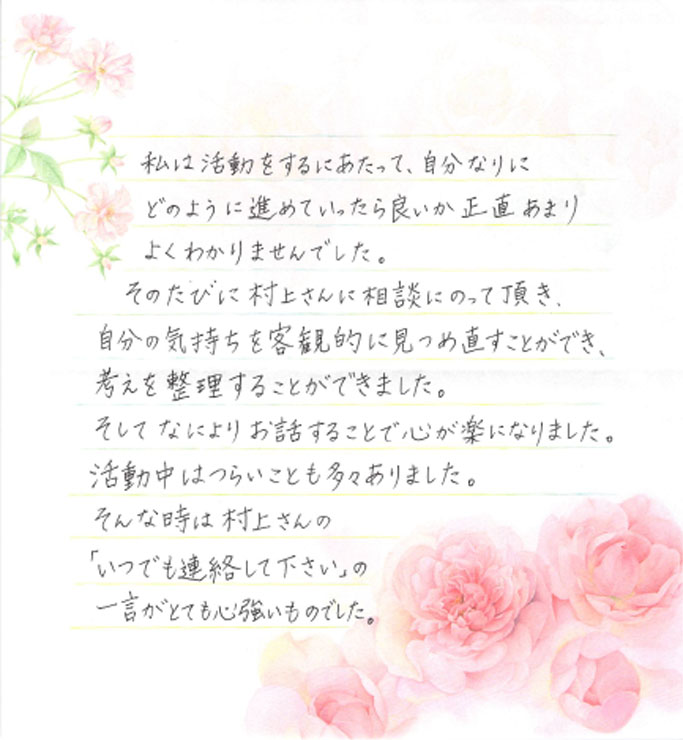 私は活動をするにあたって、自分なりに
どのように進めていったら良いか正直あまり
よくわかりませんでした。
そのたびに村上さんに相談にのって頂き、
自分の気持ちを客観的に見つめ直すことができ、
考えを整理することができました。
そしてなによりお話することで心が楽になりました。
活動中はつらいことも多々ありました。
そんな時は村上さんの
「いつでも連絡して下さい」の
一言がとても心強いものでした。